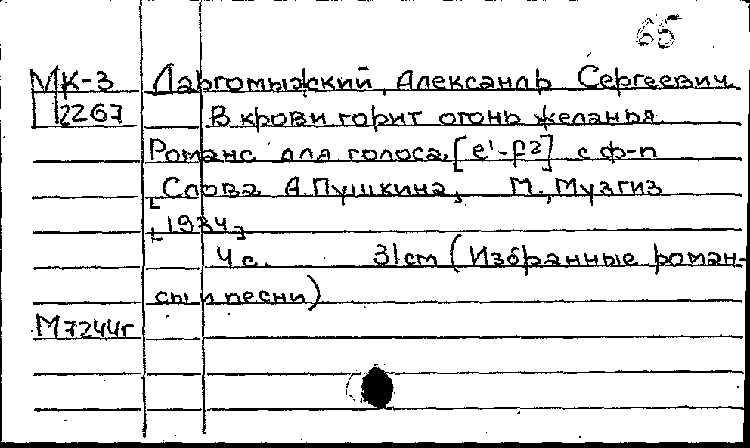 65
МК-3 Даргомыжский, Александр Сергеевич
2267 В крови горит огонь желанья
Романс для голоса [e¹-f²] с ф-п
Слова А. Пушкина, М., Музгиз
[1934]
4 с. 31 cm (Избранные роман-
сы и песни)
М7244г